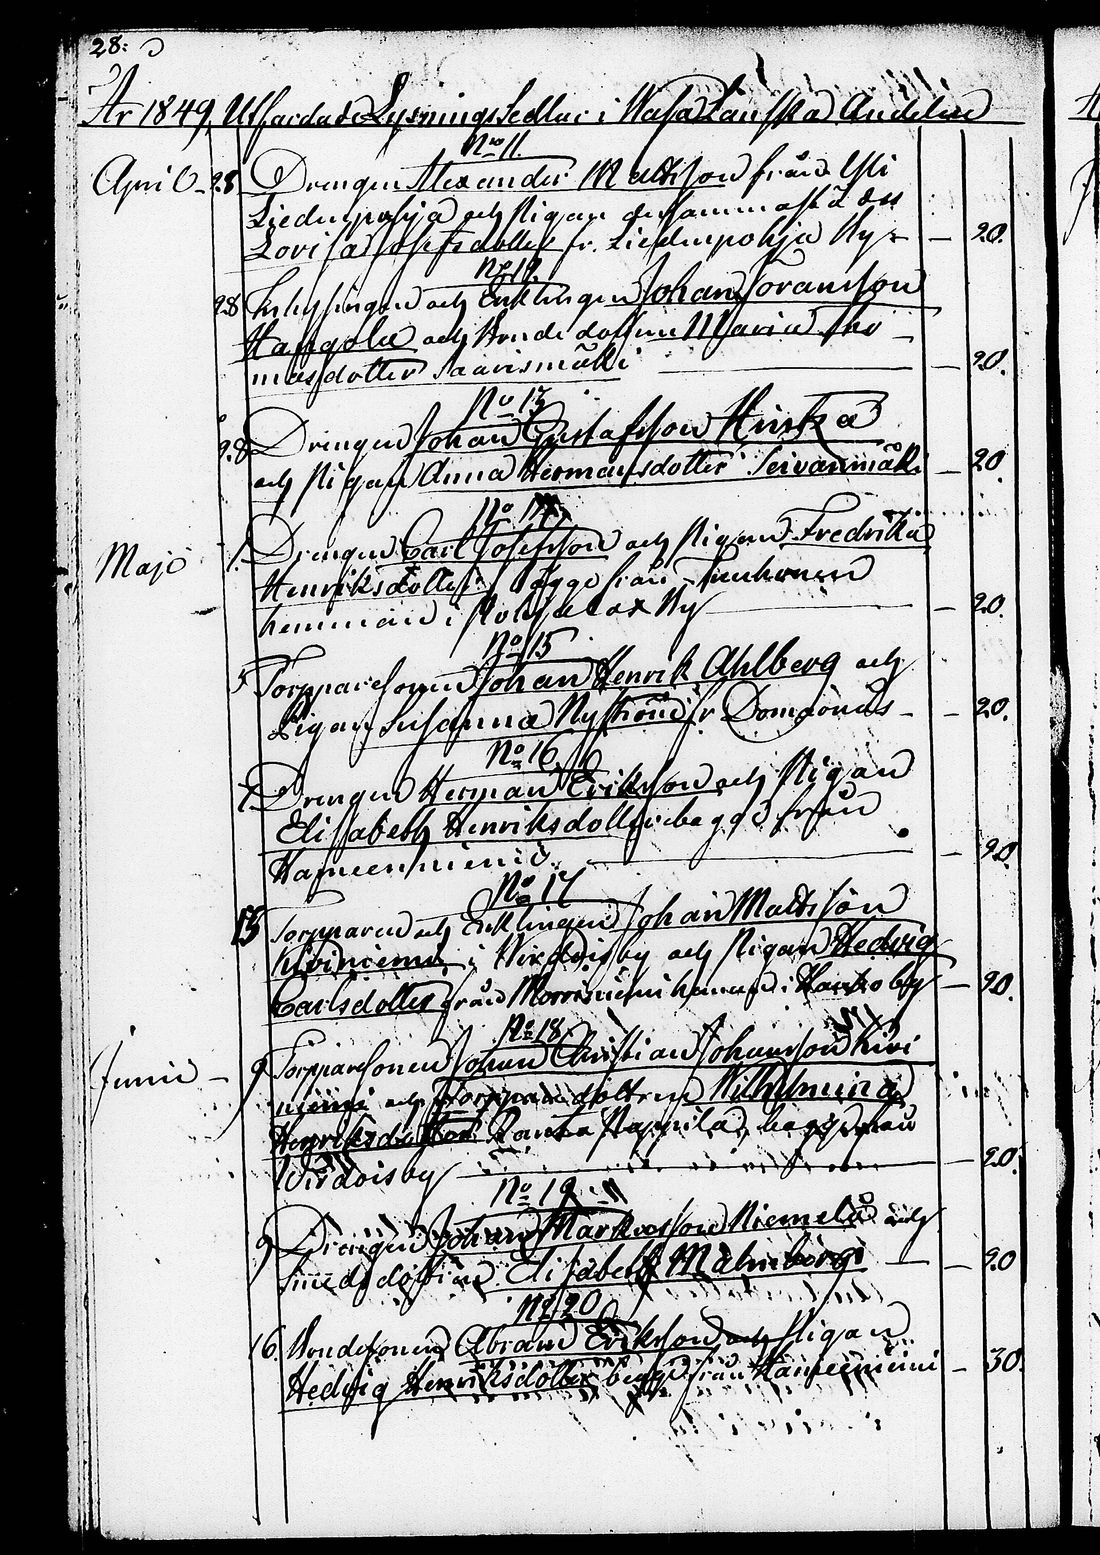 28:
År 1849 Utfärdade Lysnings Sedlar i Wasa Länska Andelen
No 11.
April 28 Drengen Alexander Mattsson från Yli
Liedenpohja och Pigan densammastädes
Lovisa Josefsdotter fr. Liedenpohja By - 20.
No 12.
28 Inhysingen och Enklingen Johan Joransson
Hangola och Bonde dottern Maria Tho
masdotter Saarismäki - 20.
No 13
28 Drengen Johan Gustafsson Hirska
och Pigan Anna Hermansdotter Seivanmäki - 20
No 14.
Maji 1. Drengen Carl Josefsson och Pigan Fredrika
Henriksdotter begge från
hemman i Pohjalax By - 20.
No 15
5 Torpparesonen Johan Henrik Ahlberg och
Pigan Susanna Nyström fr Domarnäs - 20.
No 16
7. Drengen Herman Eriksson och Pigan
Elisabeth Henriksdotter begge från
Hameenniemi - 20.
No 17
13 Torpparen och Enklingen Johan Mattsson
Kiviniemi i Wirdois by och Pigan Hedvig
Carlsdotter från hemman i by - 20.
No 18
Junii - 9 Torpparesonen Johan Christian Johansson Kivi
niemi och Torppare dottren Wilhelmina
Henriksdotter Ranta Pappila, begge från
Wirdois by - 20.
No 19
9 Drengen Johan Markusson Niemelä och
Smeds dottren Elisabeth Malmborg - 20
No 20
16. Bondesonen Abram Eriksson och Pigan
Hedvig Henriksdotter begge från Hameeniemi - 30.